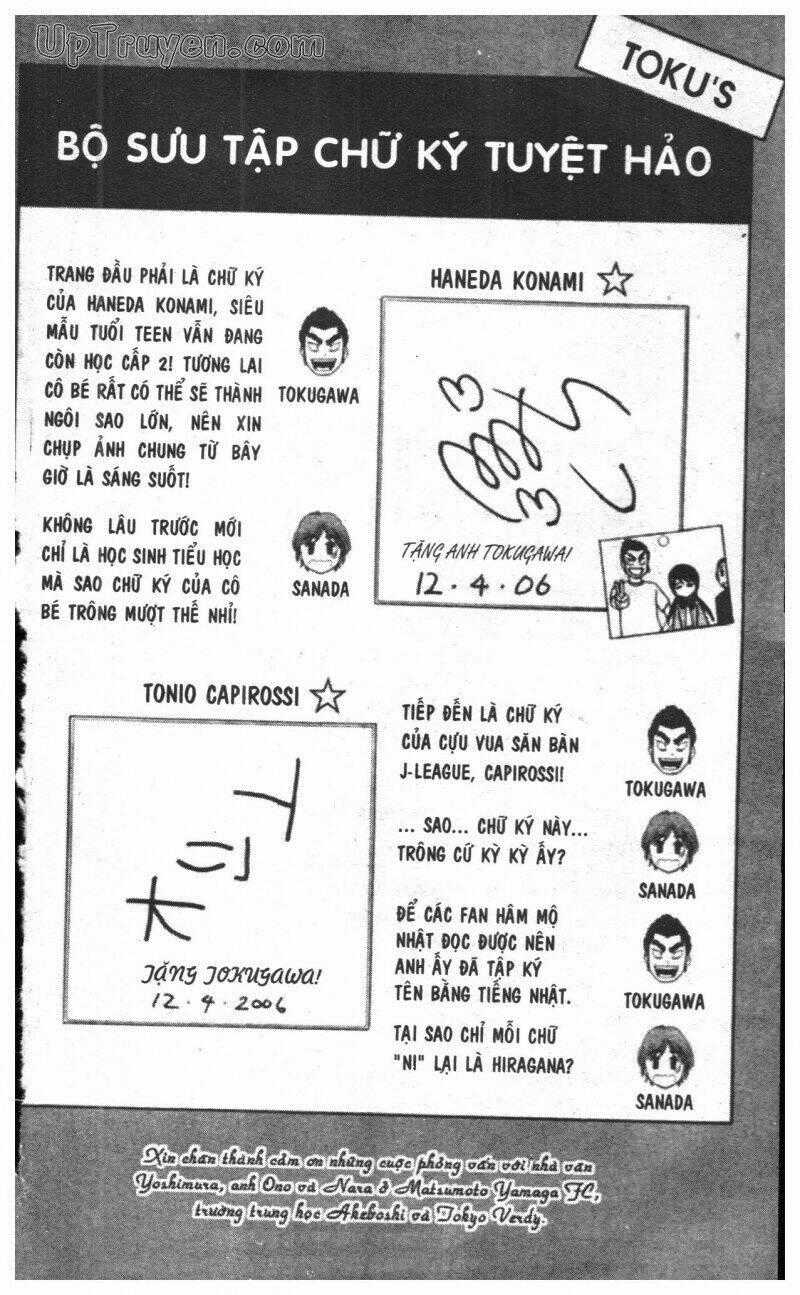 UpTruyen.com
TOKU'S
BỘ SƯU TẬP CHỮ KÝ TUYỆT HẢO
TRANG ĐẦU PHẢI LÀ CHỮ KÝ
CỦA HANEDA KONAMI, SIÊU
MẪU TUỔI TEEN VẪN ĐANG
CÒN HỌC CẤP 2! TƯƠNG LAI
CÔ BÉ RẤT CÓ THỂ SẼ THÀNH
NGÔI SAO LỚN, NÊN XIN
CHỤP ẢNH CHUNG TỪ BÂY
GIỜ LÀ SÁNG SUỐT!
TOKUGAWA
KHÔNG LÂU TRƯỚC MỚI
CHỈ LÀ HỌC SINH TIỂU HỌC
MÀ SAO CHỮ KÝ CỦA CÔ
BÉ TRÔNG MƯỢT THẾ NHỈ!
SANADA
HANEDA KONAMI ☆
TẶNG ANH TOKUGAWA!
12.4.06
TONIO CAPIROSSI ☆
トニオ
TẶNG TOKUGAWA!
12.4.2006
TIẾP ĐẾN LÀ CHỮ KÝ
CỦA CỰU VUA SĂN BÀN
J-LEAGUE, CAPIROSSI!
TOKUGAWA
... SAO... CHỮ KÝ NÀY...
TRÔNG CỨ KỲ KỲ ẤY?
SANADA
ĐỂ CÁC FAN HÂM MỘ
NHẬT ĐỌC ĐƯỢC NÊN
ANH ẤY ĐÃ TẬP KÝ
TÊN BẰNG TIẾNG NHẬT.
TOKUGAWA
TẠI SAO CHỈ MỖI CHỮ
"NI" LẠI LÀ HIRAGANA?
SANADA
Xin chân thành cảm ơn những cuộc phỏng vấn với nhà văn
Yoshimura, anh Ono và Nara ở Matsumoto Yamaga FC,
trường trung học Akeboshi và Tokyo Verdy.